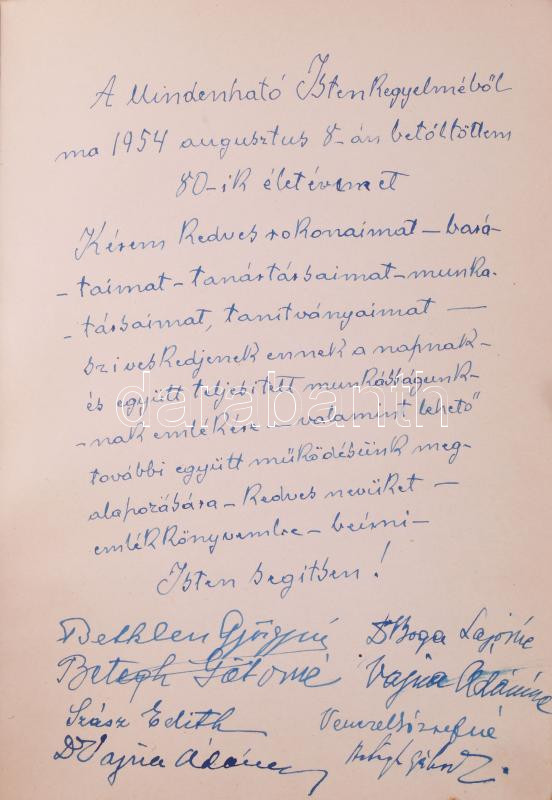 A Mindenható Isten Kegyelméből
ma 1954 augusztus 8-án betöltöttem
80-ik életévemet
Kérem Kedves rokonaimat – bará-
-taimat – tanártársaimat – munka-
-társaimat, tanítványaimat –
sziveskedjenek ennek a napnak –
és együtt teljesitett munkásságunk-
-nak emlékére – valamint lehető
további együtt működésünk meg-
alapozására – Kedves nevüket –
emlékkönyvembe – beírni –
Isten segítsen!
darabanth
Bethlen Györgyné Dr Boga Lajosné
Betegh Vajna Ádámné
Szász Edith
Dr Vajna Ádám